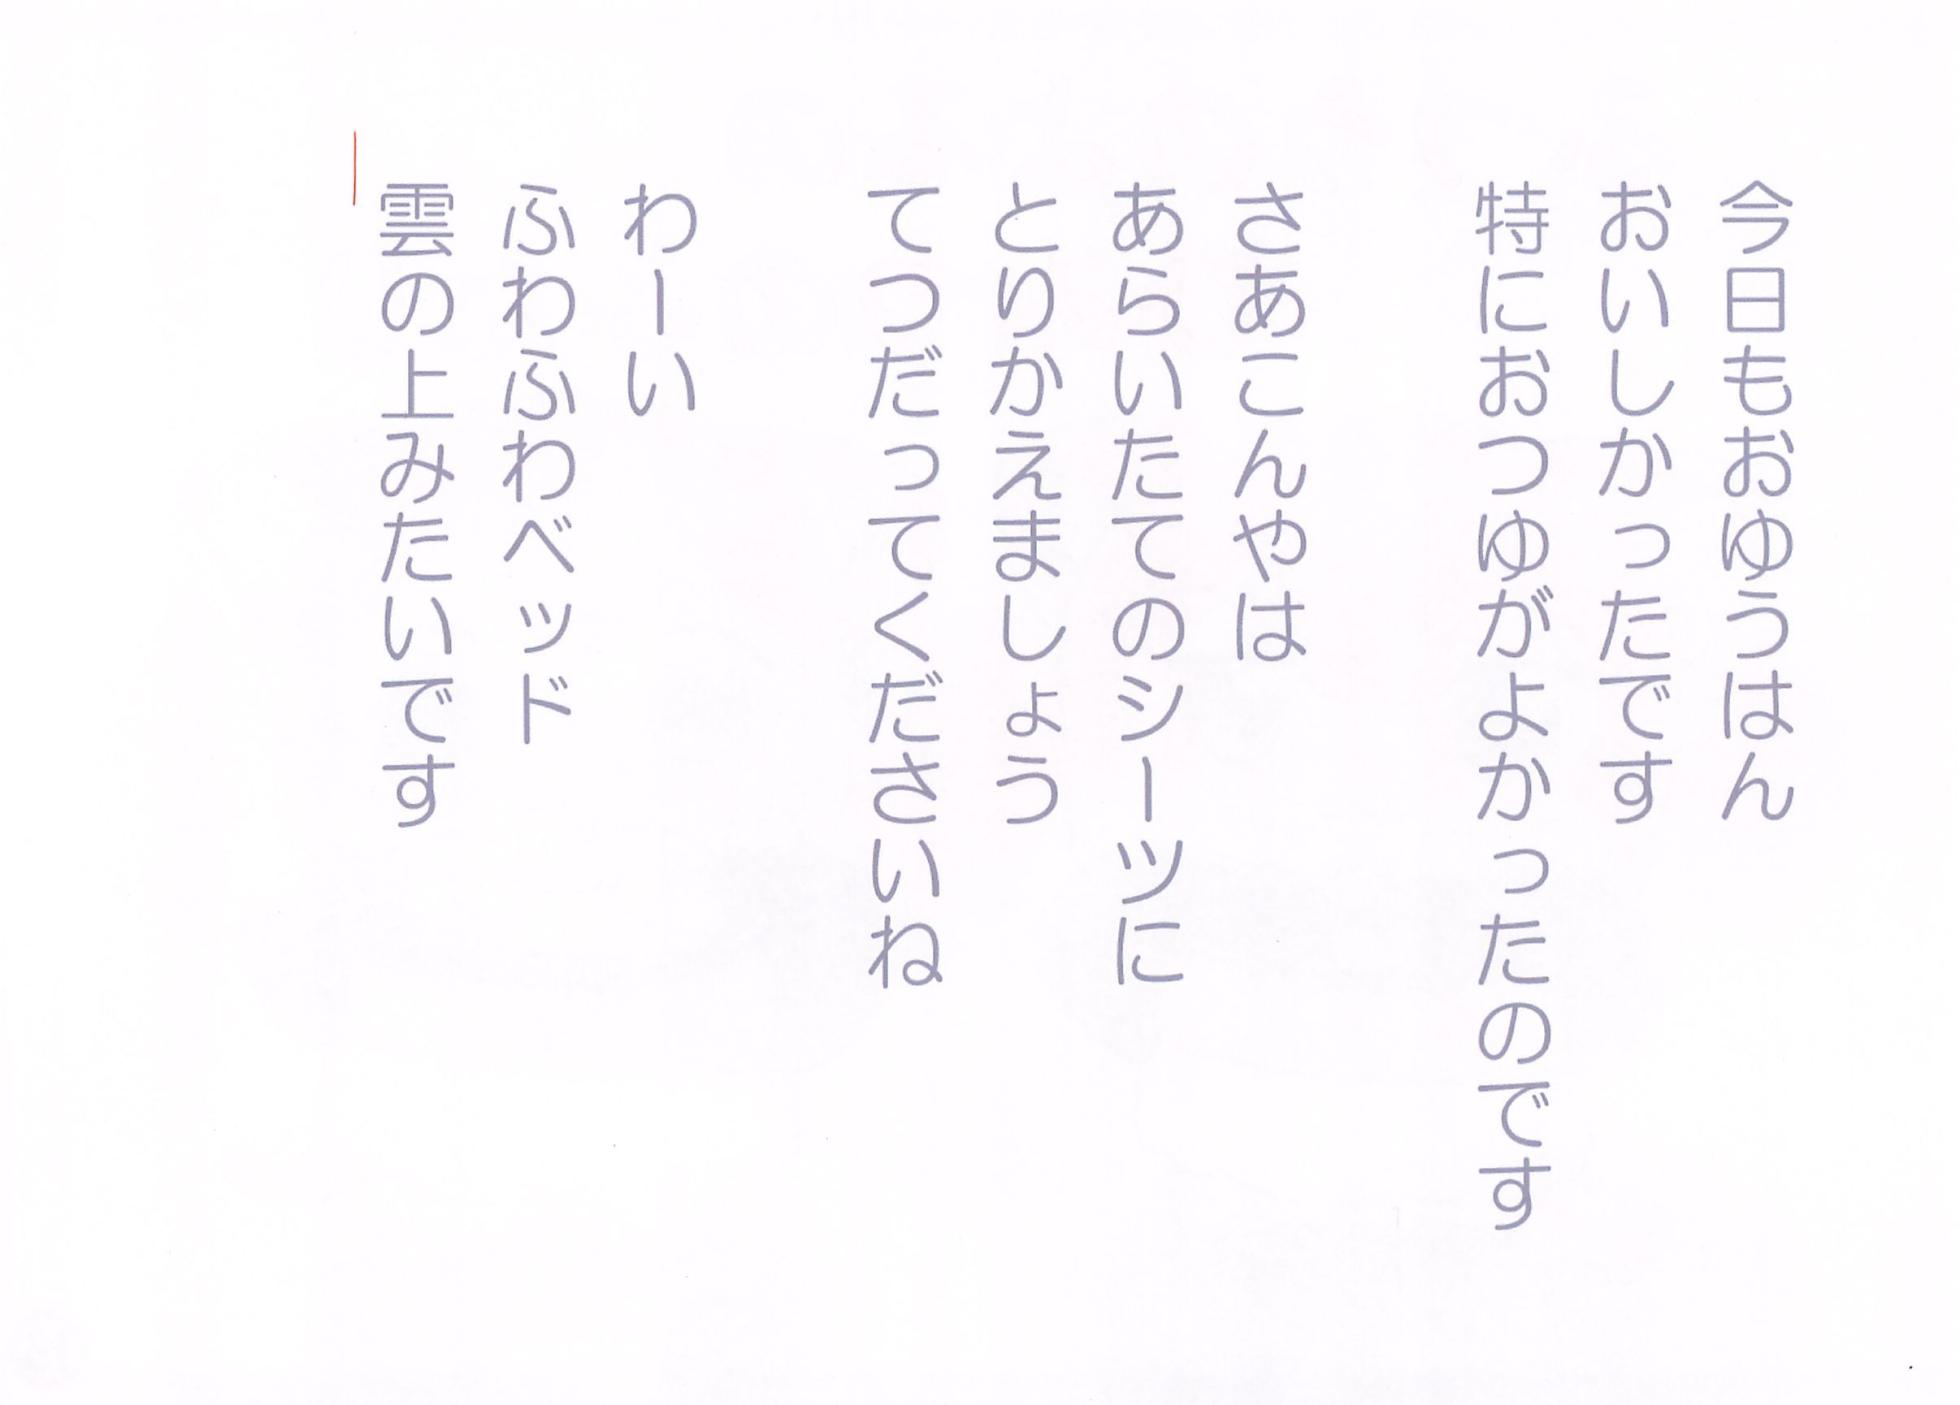 今日もおゆうはん
おいしかったです
特におつゆがよかったのです
さあこんやは
あらいたてのシーツに
とりかえましょう
てつだってくださいね
わーい
ふわふわベッド
雲の上みたいです